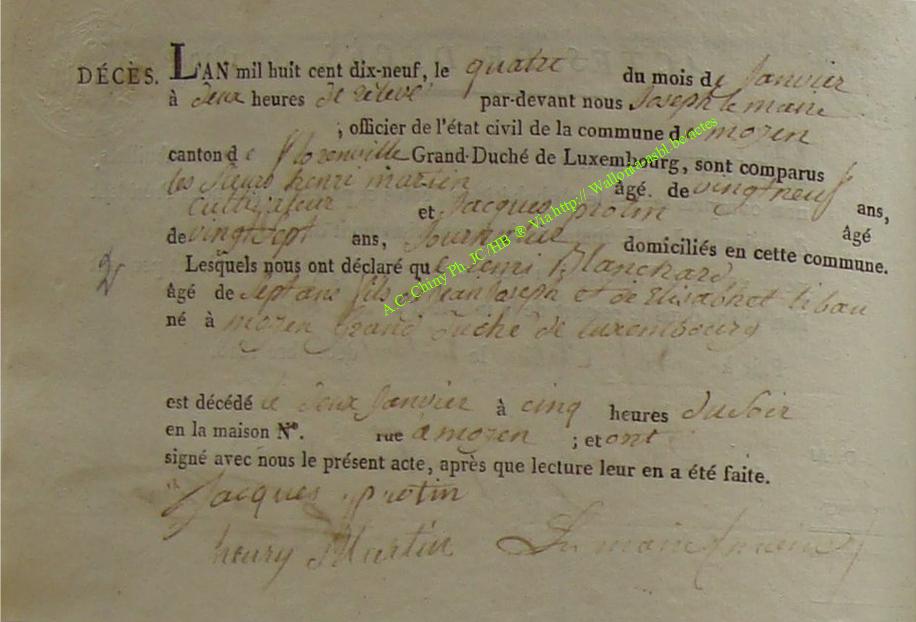 DÉCÈS. L'AN mil huit cent dix-neuf, le quatre du mois de Janvier
à deux heures de relevé par-devant nous Joseph lemaire
; officier de l'état civil de la commune de moyen
canton de florenville Grand-Duché de Luxembourg, sont comparus
les sieurs henri martin âgé de vingt neuf ans,
cultivateur et Jacques protin âgé
de vingt sept ans, domiciliés en cette commune.
Lesquels nous ont déclaré que henri Blanchard
2
âgé de sept ans fils de jean Joseph et de Elisabhet tibau
né à moyen grand duché de luxembourg
est décédé le deux Janvier à cinq heures du soir
en la maison N°. rue à moyen ; et ont
signé avec nous le présent acte, après que lecture leur en a été faite.
Jacques protin
henry Martin
A C. Chiny Ph. JC /HB ® Via http:// Wallonia asbl.be actes